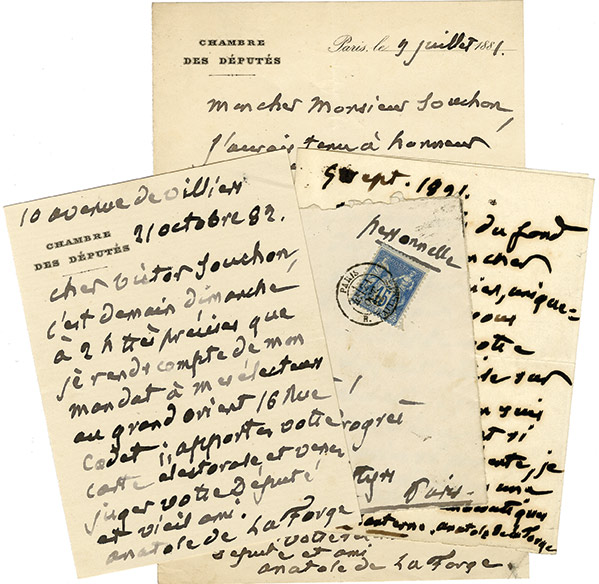 CHAMBRE
DES DÉPUTÉS
Paris, le 9 juillet 1881.
Mon cher Monsieur Souchon,
J'aurais tenu à honneur
député
et ami
anatole de La Forge
10 avenue de villiers
CHAMBRE
DES DÉPUTÉS
21 octobre 82.
cher Victor Souchon,
c'est demain dimanche,
à 2 h très précises que
je rends compte de mon
mandat à mes électeurs
au grand orient 16 Rue
Cadet ; apportez votre
carte électorale et venez
juger votre Député
et vieil ami.
anatole de La Forge
personnelle
PARIS
Paris
Sept. 1891.
du fond
cher
unique=
vous
votre
sur
suis
si
je
une
anatole de La Forge